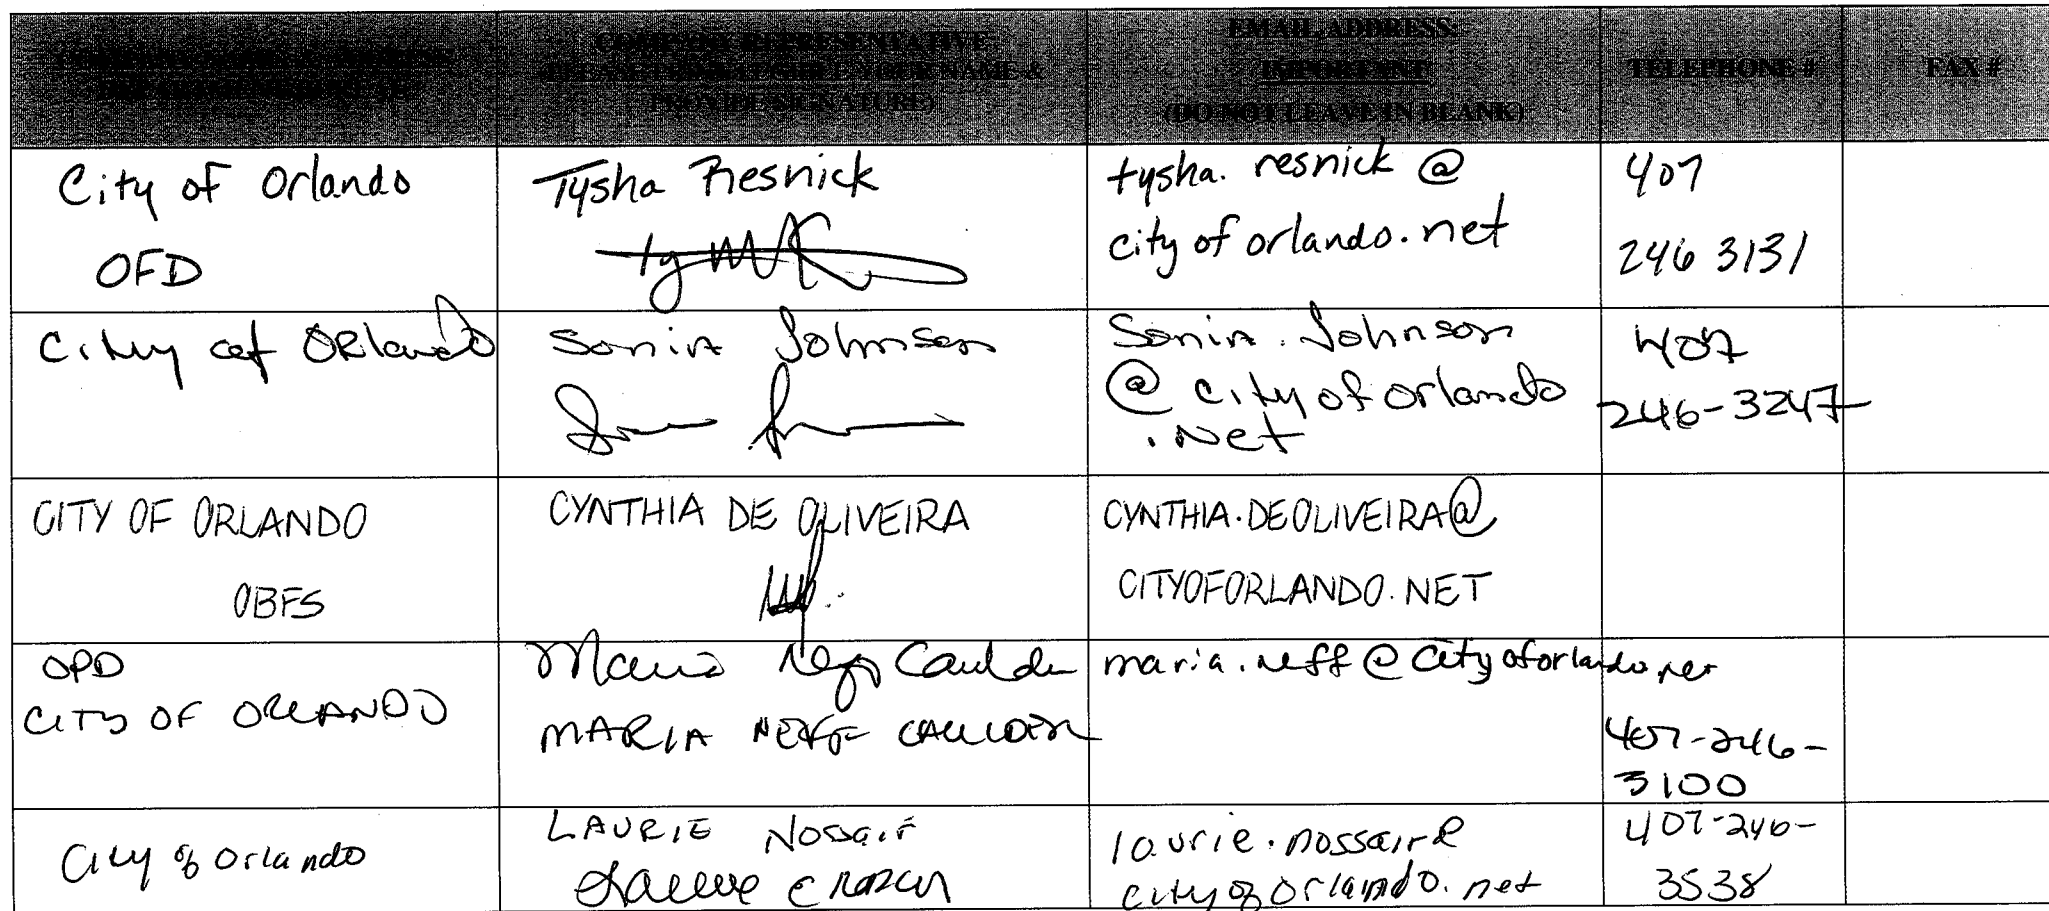 COMPANY REPRESENTATIVE
NAME &
PROVIDE SIGNATURE)
EMAIL ADDRESS
IMPORTANT
(DO NOT LEAVE IN BLANK)
TELEPHONE #
FAX #
City of Orlando
OFD
Tysha Resnick
tysha.resnick@
cityoforlando.net
407
246 3131
City of Orlando
Sonia Johnson
Sonia.Johnson
@cityoforlando
.Net
407
246-3247
CITY OF ORLANDO
OBFS
CYNTHIA DE OLIVEIRA
CYNTHIA.DEOLIVEIRA@
CITYOFORLANDO.NET
OPD
CITY OF ORLANDO
Maria Neff
MARIA NEFF
maria.neff@cityoforlando.net
407-246-
3100
City of Orlando
LAURIE Nossair
laurie.nossair@
cityoforlando.net
407-246-
3538